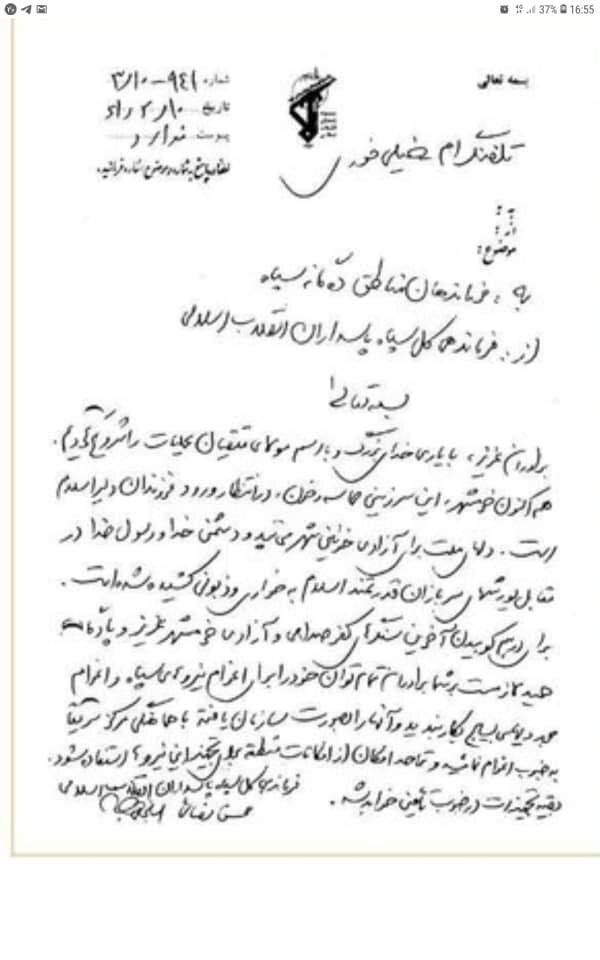 37% 16:55
بسمه تعالی
شماره ۹۴۱-۳/۱۰
تاریخ ۶۱/۲/۱۰
پیوست ندارد
تلفنگرام خیلی فوری
به:
از:
موضوع:
به: فرماندهان مناطق ده‌گانه سپاه
از: فرماندهی کل سپاه پاسداران انقلاب اسلامی
بسمه تعالی
برادران عزیز، با یاری خدای بزرگ و با رسم مولای متقیان عملیات را شروع کردیم.
هم اکنون خرمشهر، این سرزمین حماسه و خون، در انتظار ورود فرزندان دلیر اسلام
است. دلهای ملت برای آزادی خونین شهر می‌تپد و دشمن خدا و رسول خدا در
مقابل یورشهای سربازان قدرتمند اسلام به خواری و زبونی کشیده شده است.
برای درهم کوبیدن آخرین سنگرهای کفر صدامی و آزادی خرمشهر عزیز و پادگان
حمید لازمست شما برادران تمام توان خود را برای اعزام نیروهای سپاه و اعزام
مجدد یهای بسیج بکار بندید و آنها را بصورت سازمان یافته با هماهنگی مرکز سریعاً
به جنوب اعزام نمائید و تا حد امکان از امکانات منطقه برای تجهیز این نیروها استفاده شود.
بقیه تجهیزات در جنوب تأمین خواهد شد.
فرماندهی کل سپاه پاسداران انقلاب اسلامی
محسن رضائی